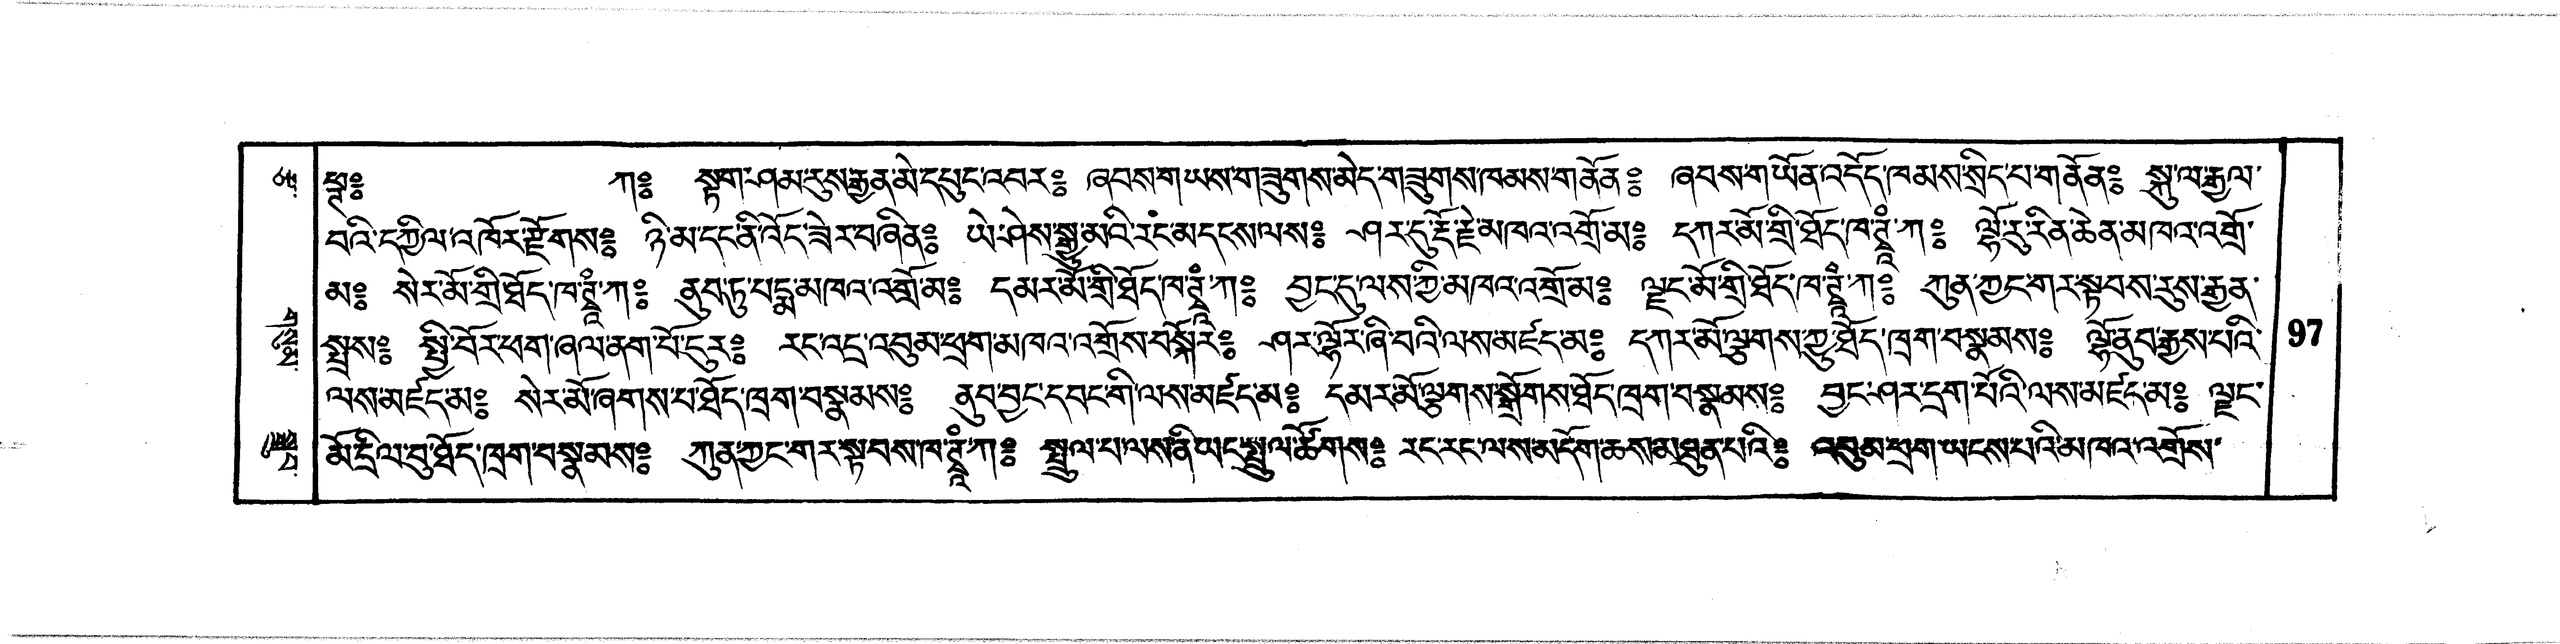 ཕྲ༔ ཀ༔ སྟག་ཤམ་རུས་རྒྱན་མེ་དཔུང་འབར༔ ཞབས་གཡས་གཟུགས་མེད་གཟུགས་ཁམས་གནོན༔ ཞབས་གཡོན་འདོད་ཁམས་སྲིད་པ་གནོན༔ སྐུ་ལ་རྒྱལ་
བའི་དཀྱིལ་འཁོར་རྫོགས༔ ཉི་མ་དང་ནི་འོད་ཟེར་བཞིན༔ ཡེ་ཤེས་སྒྱུ་མའི་རང་མདངས་ལས༔ ཤར་དུ་རྡོ་རྗེ་མཁའ་འགྲོ་མ༔ དཀར་མོ་གྲི་ཐོད་ཁ་ཊྭཱཾ་ཀ༔ ལྷོ་རུ་རིན་ཆེན་མཁའ་འགྲོ་
མ༔ སེར་མོ་གྲི་ཐོད་ཁ་ཊྭཱཾ་ཀ༔ ནུབ་ཏུ་པདྨ་མཁའ་འགྲོ་མ༔ དམར་མོ་གྲི་ཐོད་ཁ་ཊྭཱཾ་ཀ༔ བྱང་དུ་ལས་ཀྱི་མཁའ་འགྲོ་མ༔ ལྗང་མོ་གྲི་ཐོད་ཁ་ཊྭཱཾ་ཀ༔ ཀུན་ཀྱང་གར་སྟབས་རུས་རྒྱན་
སྤྲས༔ སྤྱི་བོར་ཕག་ཞལ་ནག་པོ་ངུར༔ རང་འདྲ་འབུམ་ཕྲག་མཁའ་འགྲོས་བསྐོར༔ ཤར་ལྷོར་ཞི་བའི་ལས་མཛད་མ༔ དཀར་མོ་ལྕགས་ཀྱུ་ཐོད་ཁྲག་བསྣམས༔ ལྷོ་ནུབ་རྒྱས་པའི་
ལས་མཛད་མ༔ སེར་མོ་ཞགས་པ་ཐོད་ཁྲག་བསྣམས༔ ནུབ་བྱང་དབང་གི་ལས་མཛད་མ༔ དམར་མོ་ལྕགས་སྒྲོགས་ཐོད་ཁྲག་བསྣམས༔ བྱང་ཤར་དྲག་པོའི་ལས་མཛད་མ༔ ལྗང་
མོ་དྲིལ་བུ་ཐོད་ཁྲག་བསྣམས༔ ཀུན་ཀྱང་གར་སྟབས་ཁ་ཊྭཱཾ་ཀ༔ སྤྲུལ་པ་ལས་ནི་ཡང་སྤྲུལ་ཚོགས༔ རང་རང་ལས་མདོག་ཆས་མཐུན་པའི༔ འབུམ་ཕྲག་ཡངས་པའི་མཁའ་འགྲོས་
97